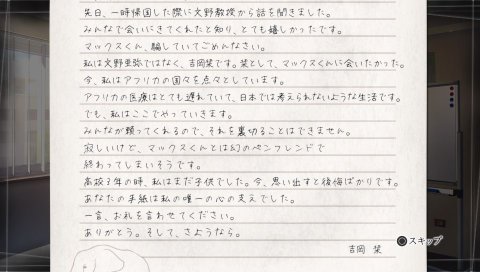 先日、一時帰国した際に文野教授から話を聞きました。
みんなで会いにきてくれたと知り、とても嬉しかったです。
マックスくん、騙していてごめんなさい。
私は文野亜弥ではなく、吉岡栞です。栞として、マックスくんに会いたかった。
今、私はアフリカの国々を点々としています。
アフリカの医療はとても遅れていて、日本では考えられないような生活です。
でも、私はここでやっていきます。
みんなが頼ってくれるので、それを裏切ることはできません。
寂しいけど、マックスくんとは幻のペンフレンドで
終わってしまいそうです。
高校3年の時、私はまだ子供でした。今、思い出すと後悔ばかりです。
あなたの手紙は私の唯一の心の支えでした。
一言、お礼を言わせてください。
ありがとう。そして、さようなら。
吉岡 栞
スキップ